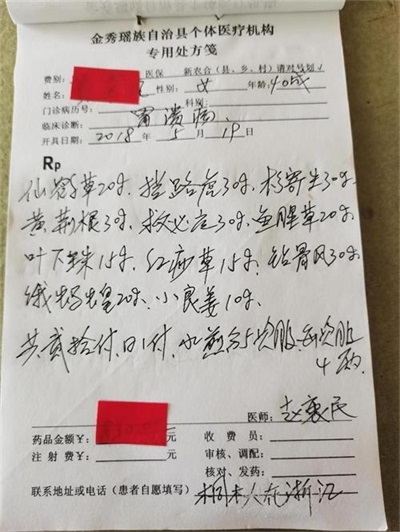 金秀瑶族自治县个体医疗机构
专用处方笺
费别： 医保 新农合（县、乡、村）请对号划√
姓名： 性别：女 年龄：40岁
门诊病历号： 科别：
临床诊断：胃溃疡
开具日期：2018 年 5 月 19日
Rp
仙鹤草20g. 挡路虎30g. 杉寄生30g.
黄荆根30g. 救必应30g. 鱼腥草20g
叶下珠15g. 草15g. 钻骨风30g
饿蚂蝗20g. 小良姜10g.
共贰拾付,日1付,水煎分5次服,每次服
4两.
医师：赵
药品金额￥： 元 收 费 员：
注 射 费￥： 元 审核、调配：
核对、发药：
联系地址或电话（患者自愿填写） 桐木人在浙江